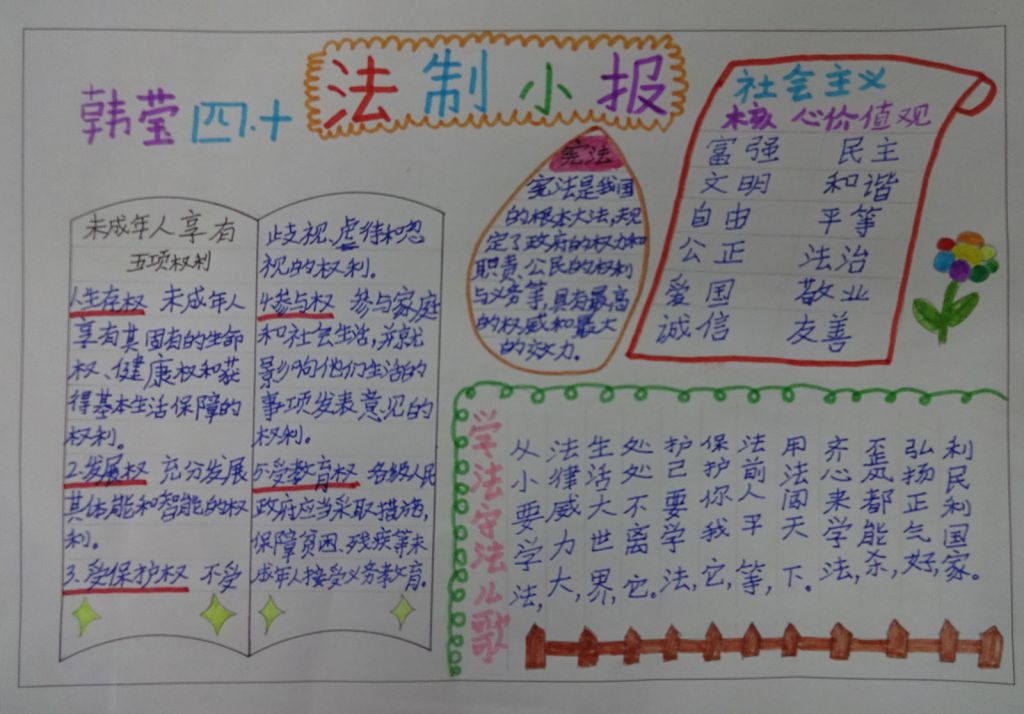 韩莹四.十
法制小报
未成年人享有
五项权利
1.生存权 未成年人
享有其固有的生命
权、健康权和获
得基本生活保障的
权利。
2.发展权 充分发展
其体能和智能的权
利。
3.受保护权 不受
歧视、虐待和忽
视的权利。
4.参与权 参与家庭
和社会生活,并就
影响他们生活的
事项发表意见的
权利。
5.受教育权 各级人民
政府应当采取措施,
保障贫困、残疾等未
成年人接受义务教育.
宪法
宪法是我国
的根本大法,规
定了政府的权力和
职责、公民的权利
与义务等,具有最高
的权威和最大
的效力.
社会主义
核心价值观
富强 民主
文明 和谐
自由 平等
公正 法治
爱国 敬业
诚信 友善
学法守法儿歌
从小要学法,
法律威力大,
生活大世界,
处处不离它。
护己要学法,
保护你我它,
法前人平等,
用法闯天下.
齐心来学法,
歪风都能杀,
弘扬正气好,
利民利国家。